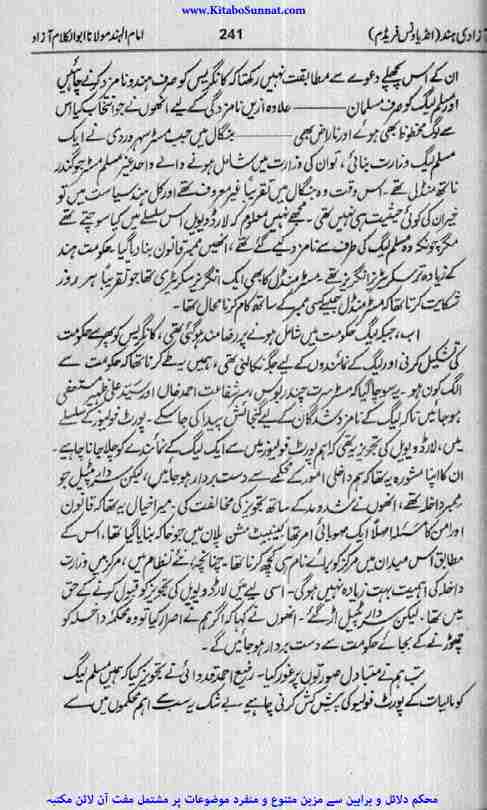 www.KitaboSunnat.com
آزادی ہند (انڈیا ونس فریڈم) 241 امام الہند مولانا ابوالکلام آزاد
ان کے اس پچھلے دعوے سے مطابقت نہیں رکھتا کہ کانگریس کو صرف ہندو نامزد کرنے چاہئیں
اور مسلم لیگ کو صرف مسلمان ——— علاوہ ازیں نامزدگی کے لیے انھوں نے جو انتخاب کیا اس
سے لوگ محظوظ بھی ہوئے اور ناراض بھی ——— بنگال میں جب مسٹر سہروردی نے ایک
مسلم لیگ وزارت بنائی، تو ان کی وزارت میں شامل ہونے والے واحد غیر مسلم مسٹر جوگندر
ناتھ منڈل تھے۔ اس وقت وہ بنگال میں تقریباً غیر معروف تھے اور کل ہند سیاست میں تو
خیر ان کی کوئی حیثیت ہی نہیں تھی۔ مجھے نہیں معلوم کہ لارڈ ویول اس سلسلے میں کیا سوچتے تھے
مگر چونکہ وہ مسلم لیگ کی طرف سے نامزد کیے گئے تھے، انھیں ممبر قانون بنا دیا گیا۔ حکومت ہند
کے زیادہ تر سکریٹریز انگریز تھے۔ مسٹر منڈل کا بھی ایک انگریز سکریٹری تھا جو تقریباً ہر روز
شکایت کرتا تھا کہ مسٹر منڈل جیسے کسی ممبر کے ساتھ کام کرنا محال تھا۔
اب، جبکہ لیگ حکومت میں شامل ہونے پر رضا مند ہو گئی تھی، کانگریس کو پھر سے حکومت
کی تشکیل کرنی اور لیگ کے نمائندوں کے لیے جگہ نکالنی تھی، ہمیں یہ طے کرنا تھا کہ حکومت سے
الگ کون ہو۔ یہ سوچا گیا کہ مسٹر سرت چندر بوس، سر شفاعت احمد خاں اور سید علی ظہیر مستعفی
ہو جائیں تاکہ لیگ کے نامزد شدگان کے لیے گنجائش پیدا کی جا سکے۔ پورٹ فولیوز کے سلسلے
میں، لارڈ ویول کی تجویز یہ تھی کہ اہم پورٹ فولیوز میں سے ایک لیگ کے نمائندے کو چلا جانا چاہیے۔
ان کا اپنا مشورہ یہ تھا کہ ہم داخلی امور کے محکمے سے دست بردار ہو جائیں، لیکن سردار پٹیل جو
ممبر داخلہ تھے، انھوں نے شد و مد کے ساتھ تجویز کی مخالفت کی۔ میرا خیال یہ تھا کہ قانون
اور امن کا مسئلہ اصلاً ایک صوبائی امر تھا۔ کیبینیٹ مشن پلان میں جو خاکہ بنایا گیا تھا، اس کے
مطابق اس میدان میں مرکز کو برائے نام ہی کچھ کرنا تھا۔ چنانچہ، نئے نظام میں، مرکز میں وزارت
داخلہ کی اہمیت بہت زیادہ نہیں ہو گی۔ اسی لیے میں لارڈ ویول کی تجویز کو قبول کرنے کے حق
میں تھا۔ لیکن سردار پٹیل اڑ گئے۔ انھوں نے کہا کہ اگر ہم نے اصرار کیا تو وہ محکمۂ داخلہ کو
چھوڑنے کے بجائے حکومت سے دست بردار ہو جائیں گے۔
تب ہم نے متبادل صورتوں پر غور کیا۔ رفیع احمد قدوائی نے تجویز کیا کہ ہمیں مسلم لیگ
کو مالیات کے پورٹ فولیو کی پیش کش کرنی چاہیے۔ بے شک یہ سب سے اہم محکموں میں سے
محکم دلائل و براہین سے مزین متنوع و منفرد موضوعات پر مشتمل مفت آن لائن مکتبہ